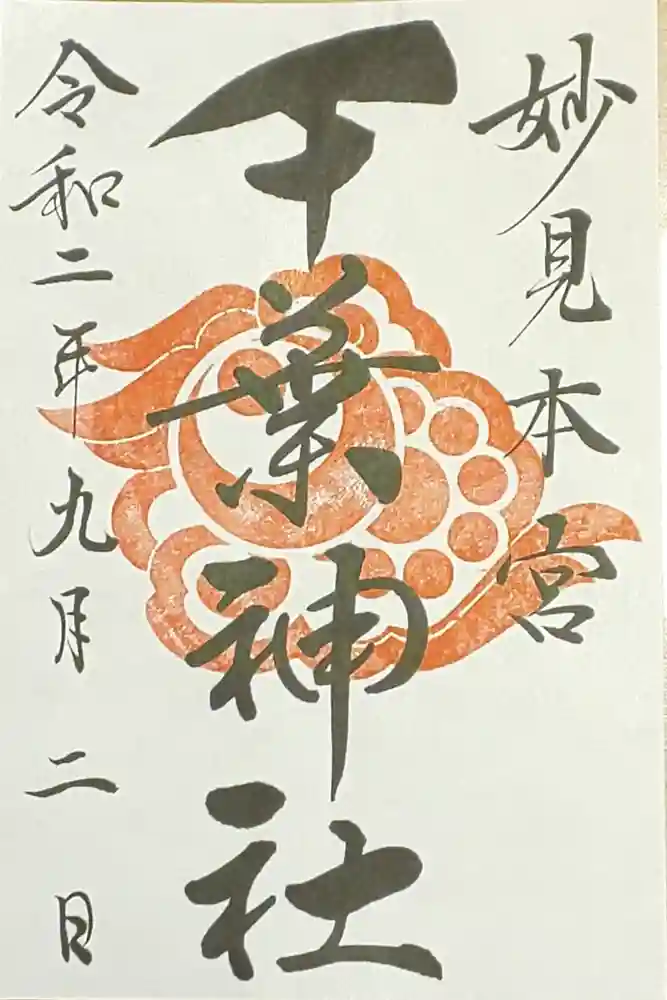 妙見本宮
千葉神社
令和二年九月二日